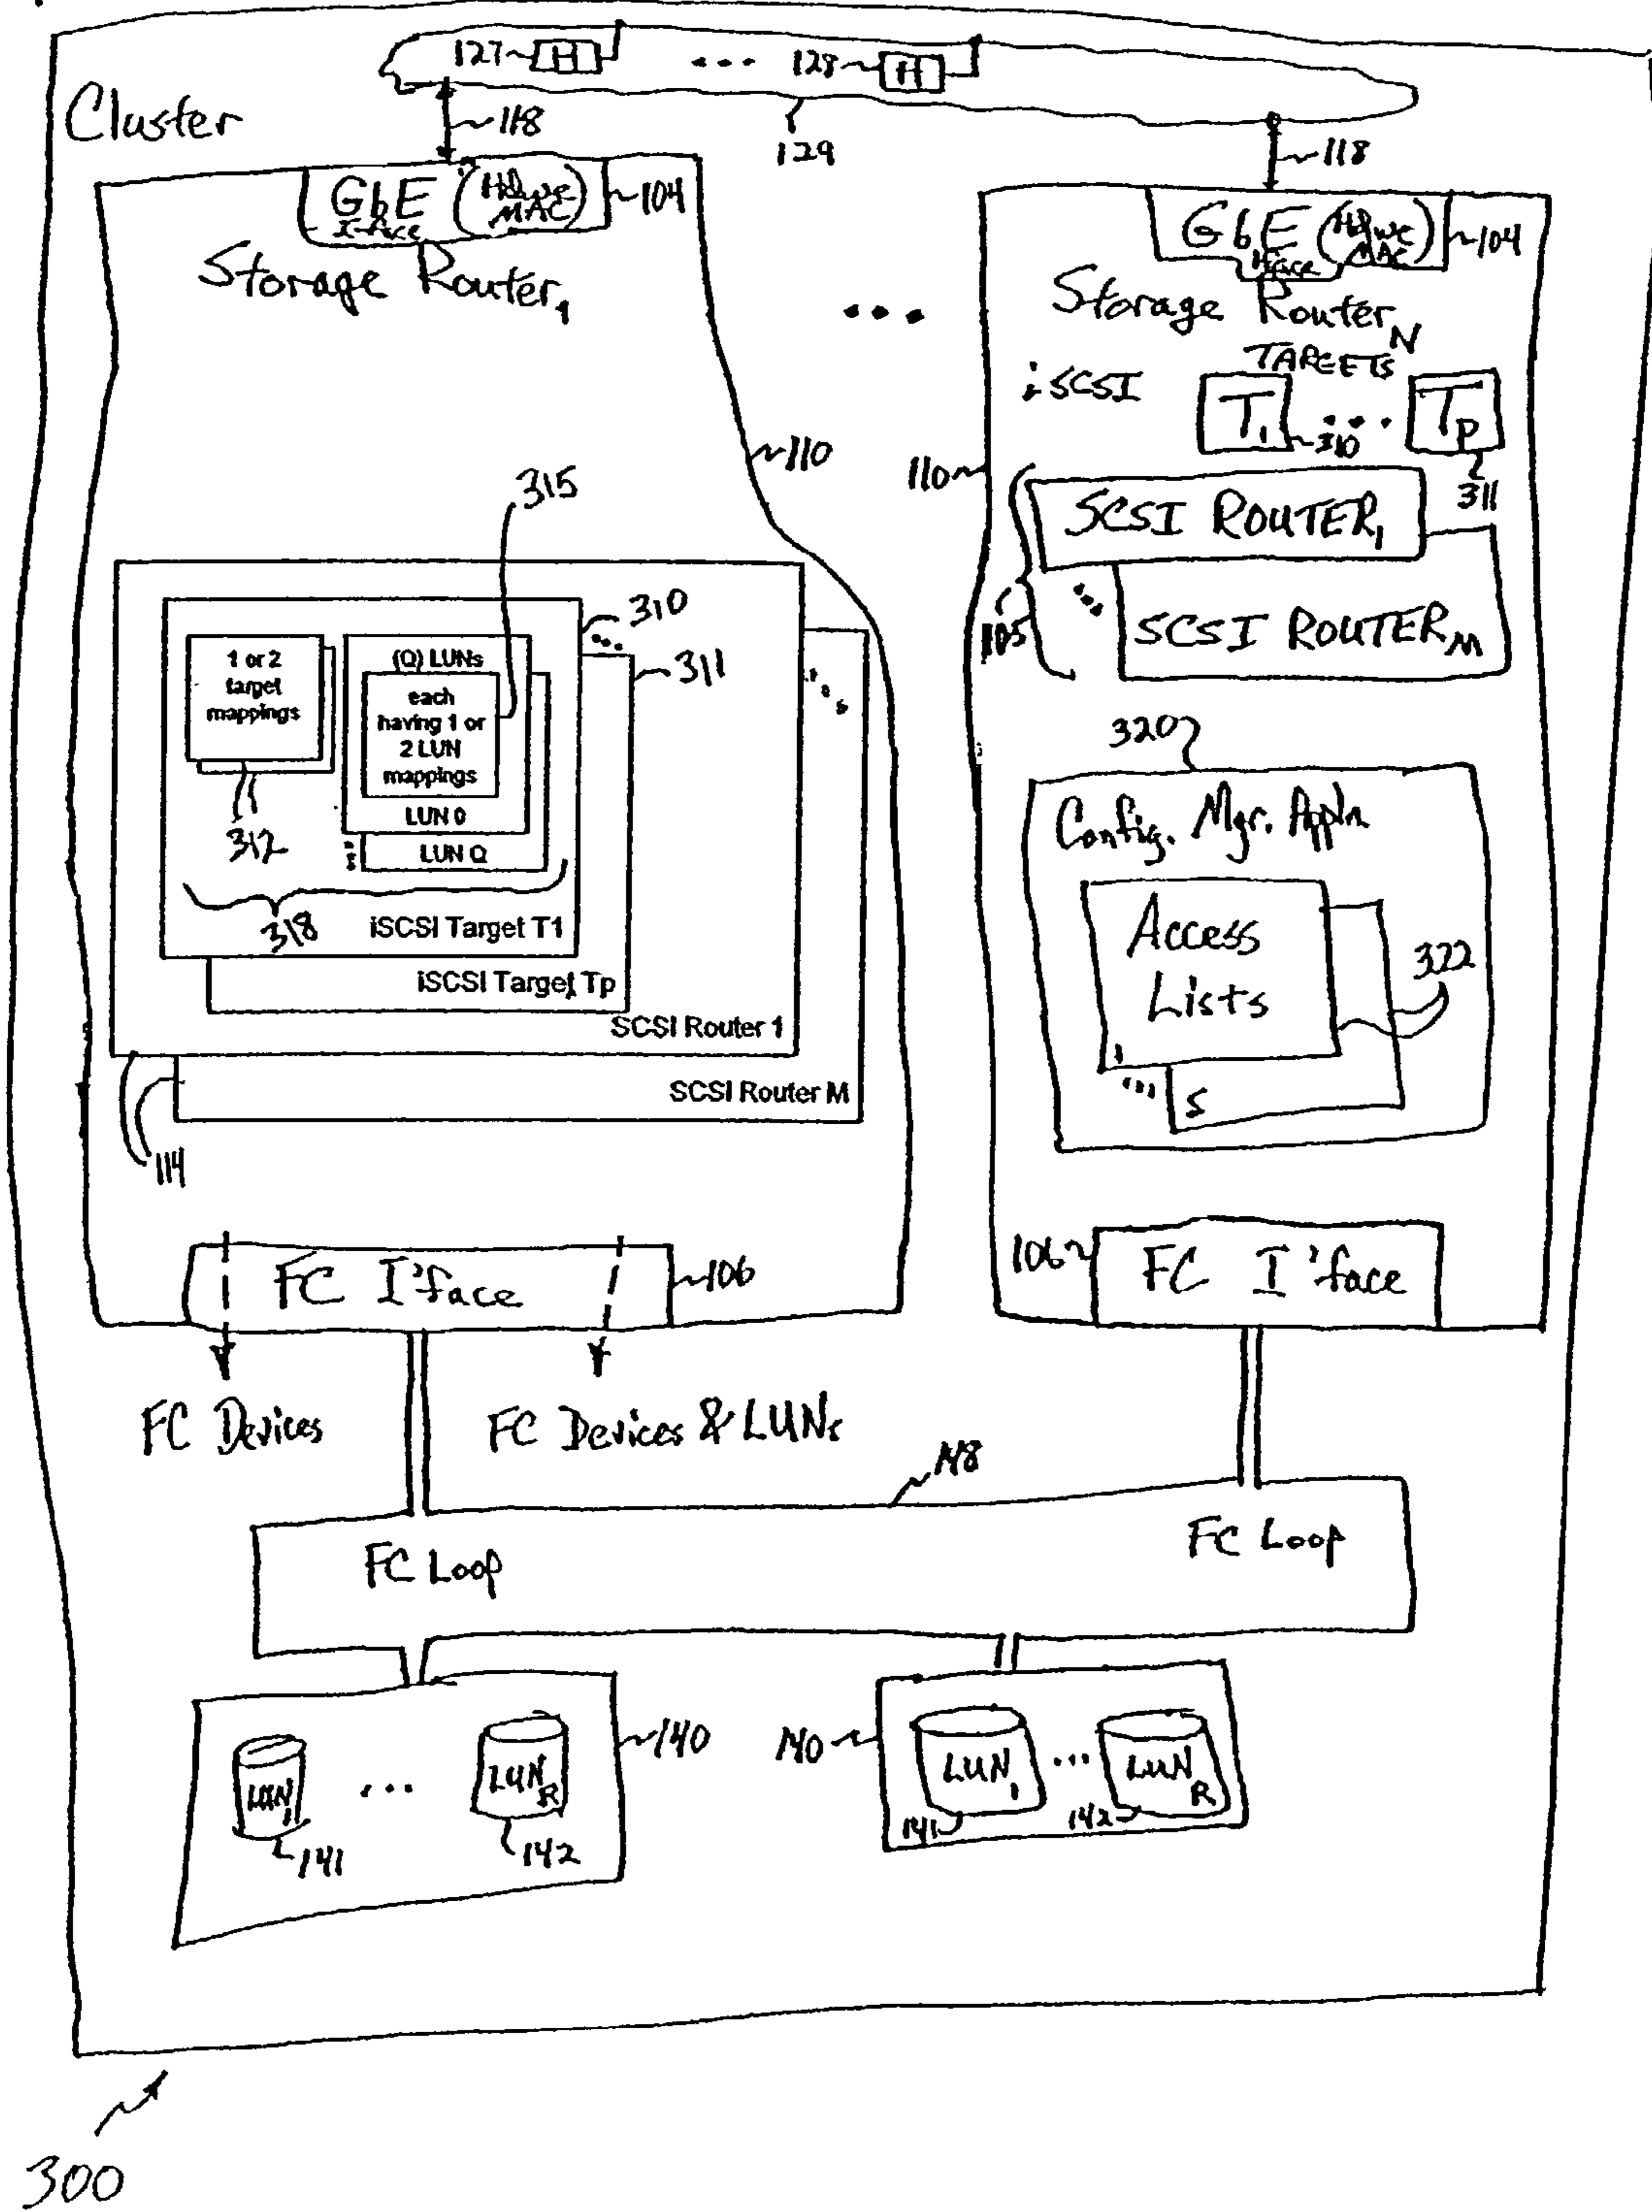 127 H ... 128 H
Cluster
118
129
118
GbE (Hdwe
I-face MAC)
104
Storage Router1
...
GbE (Hdwe
I-face MAC)
104
Storage RouterN
TARGETS
iSCSI
T1 ... TP
310
311
110
110
315
SCSI ROUTER1
...
SCSI ROUTERM
105
310
...
311
...
1 or 2
target
mappings
312
(Q) LUNs
each
having 1 or
2 LUN
mappings
LUN 0
...
LUN Q
318
iSCSI Target T1
iSCSI Target Tp
SCSI Router 1
SCSI Router M
114
320
Config. Mgr. Appln
Access
Lists
1
...
S
322
FC I'face
106
106
FC I'face
FC Devices
FC Devices & LUNs
148
FC Loop
FC Loop
LUN1 ... LUNR
141
142
140
140
LUN1 ... LUNR
141
142
300